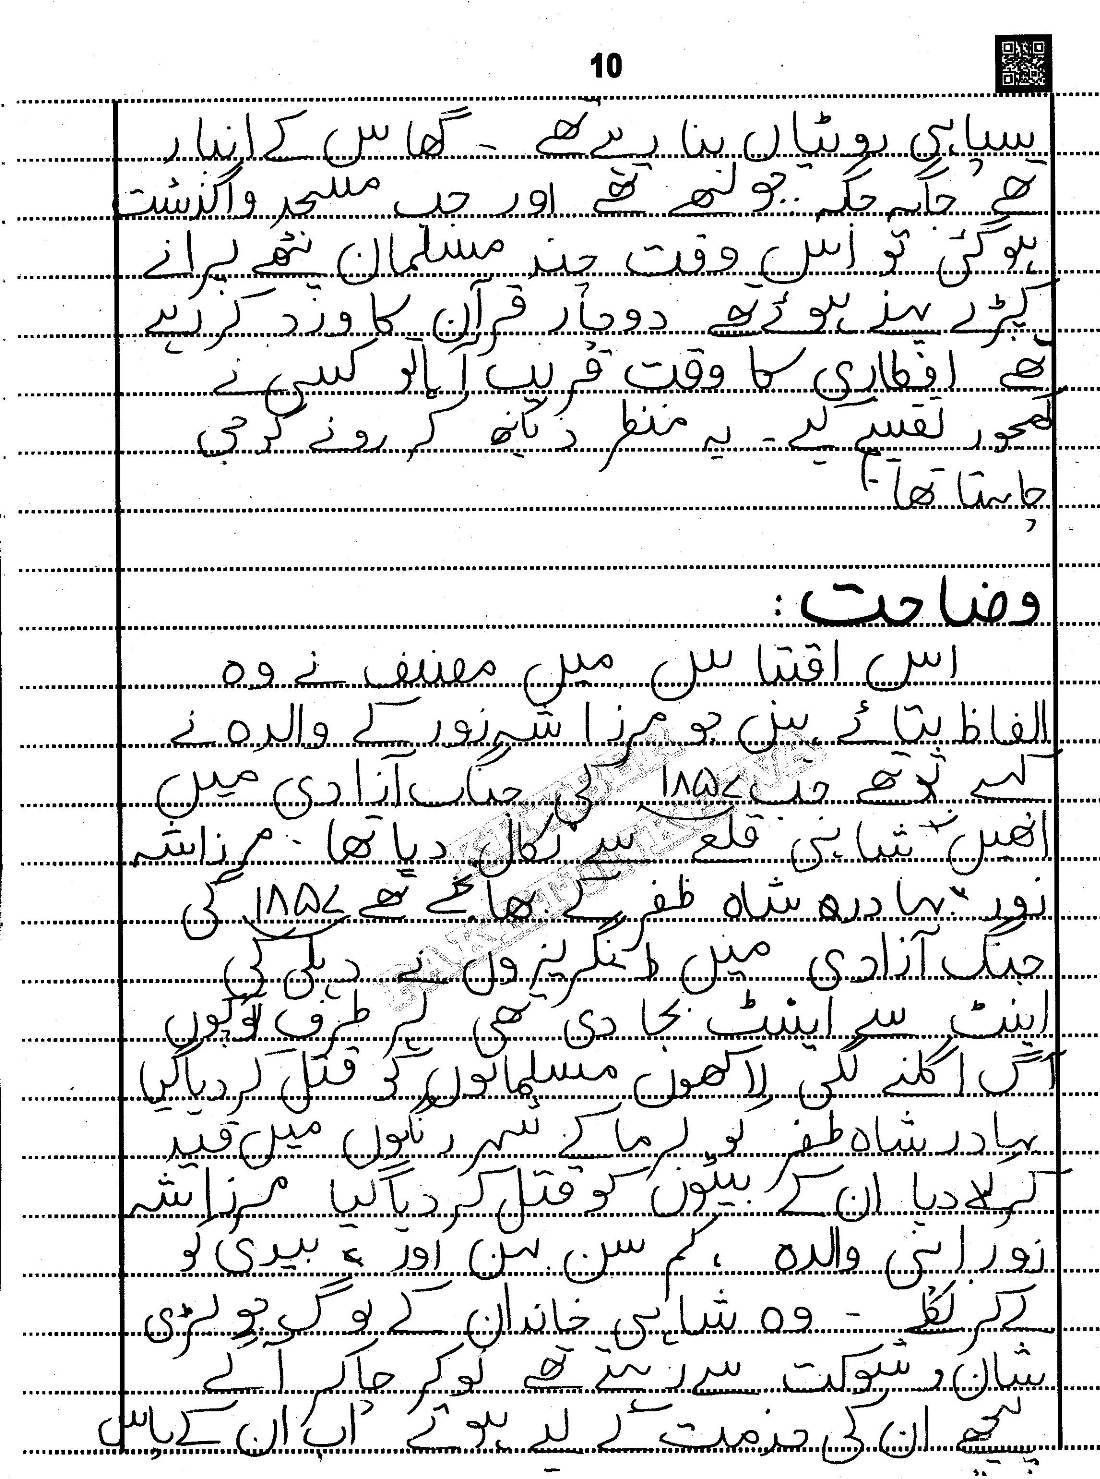 10
سپاہی روٹیاں بنا رہے تھے - گھاس کے انبار
تھے جگہ جگہ چولھے تھے اور جب مسجد واگذشت
ہوگئی تو اُس وقت چند مسلمان پھٹے پرانے
کپڑے پہنے ہوئے تھے دوچار قرآن کا ورد کر رہے
تھے افطاری کا وقت قریب آیا تو کسی نے
کھجور تقسیم کیے - یہ منظر دیکھ کر رونے کو جی
چاہتا تھا -)
وضاحت :
اس اقتباس میں مصنف نے وہ
الفاظ بتائے ہیں جو مرزا شہ زور کے والدہ نے
کہے تھے جب ۱۸۵۷ کی جنگ آزادی میں
انھیں شاہی قلعے سے نکال دیا تھا - مرزا شہ
زور بہادرہ شاہ ظفر کے بھانجے تھے ۱۸۵۷ کی
جنگ آزادی میں انگریزوں نے دہلی کی
اینٹ سے اینٹ بجا دی تھی ہر طرف توپوں
آگ اگلنے لگی لاکھوں مسلمانوں کو قتل کر دیا گیا
بہادر شاہ ظفر کو برما کے شہر رنگوں میں قید
کر دیا ان کے بیٹوں کو قتل کر دیا گیا مرزا شہ
زور اپنی والدہ ، کم سن بہن اور بیوی کو
لے کر نکلے - وہ شاہی خاندان کے لوگ جو بڑی
شان و شوکت سے رہتے تھے نوکر چاکر آگے
پیچھے ان کی خدمت کے لیے ہوتے اب ان کے پاس